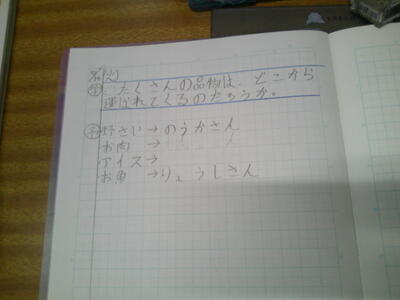 (火)
たくさんの品物は、どこから
運ばれてくるのだろうか。
予 野さい→のうかさん
お肉 →
アイス→
お魚 →りょうしさん